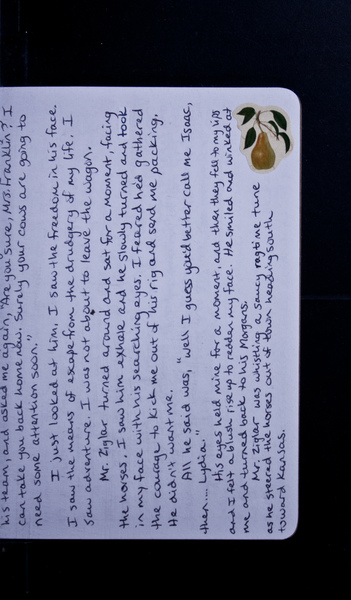 his team, and asked me again, "Are you sure, Mrs. Franklin? I
can take you back home now. Surely your cows are going to
need some attention soon."
I just looked at him. I saw the freedom in his face.
I saw the means of escape from the drudgery of my life. I
saw adventure. I was not about to leave the wagon.
Mr. Ziglar turned around and sat for a moment, facing
the horses. I saw him exhale and he slowly turned and took
in my face with his searching eyes. I feared he'd gathered
the courage to kick me out of his rig and send me packing.
He didn't want me.
All he said was, "Well I guess you'd better call me Isaac,
then.... Lydia."
His eyes held mine for a moment, and then they fell to my lips
and I felt a blush rise up to redden my face. He smiled and winked at
me and turned back to his Morgans.
Mr. Ziglar was whistling a saucy ragtime tune
as he steered the horses out of town heading south
toward Kansas.